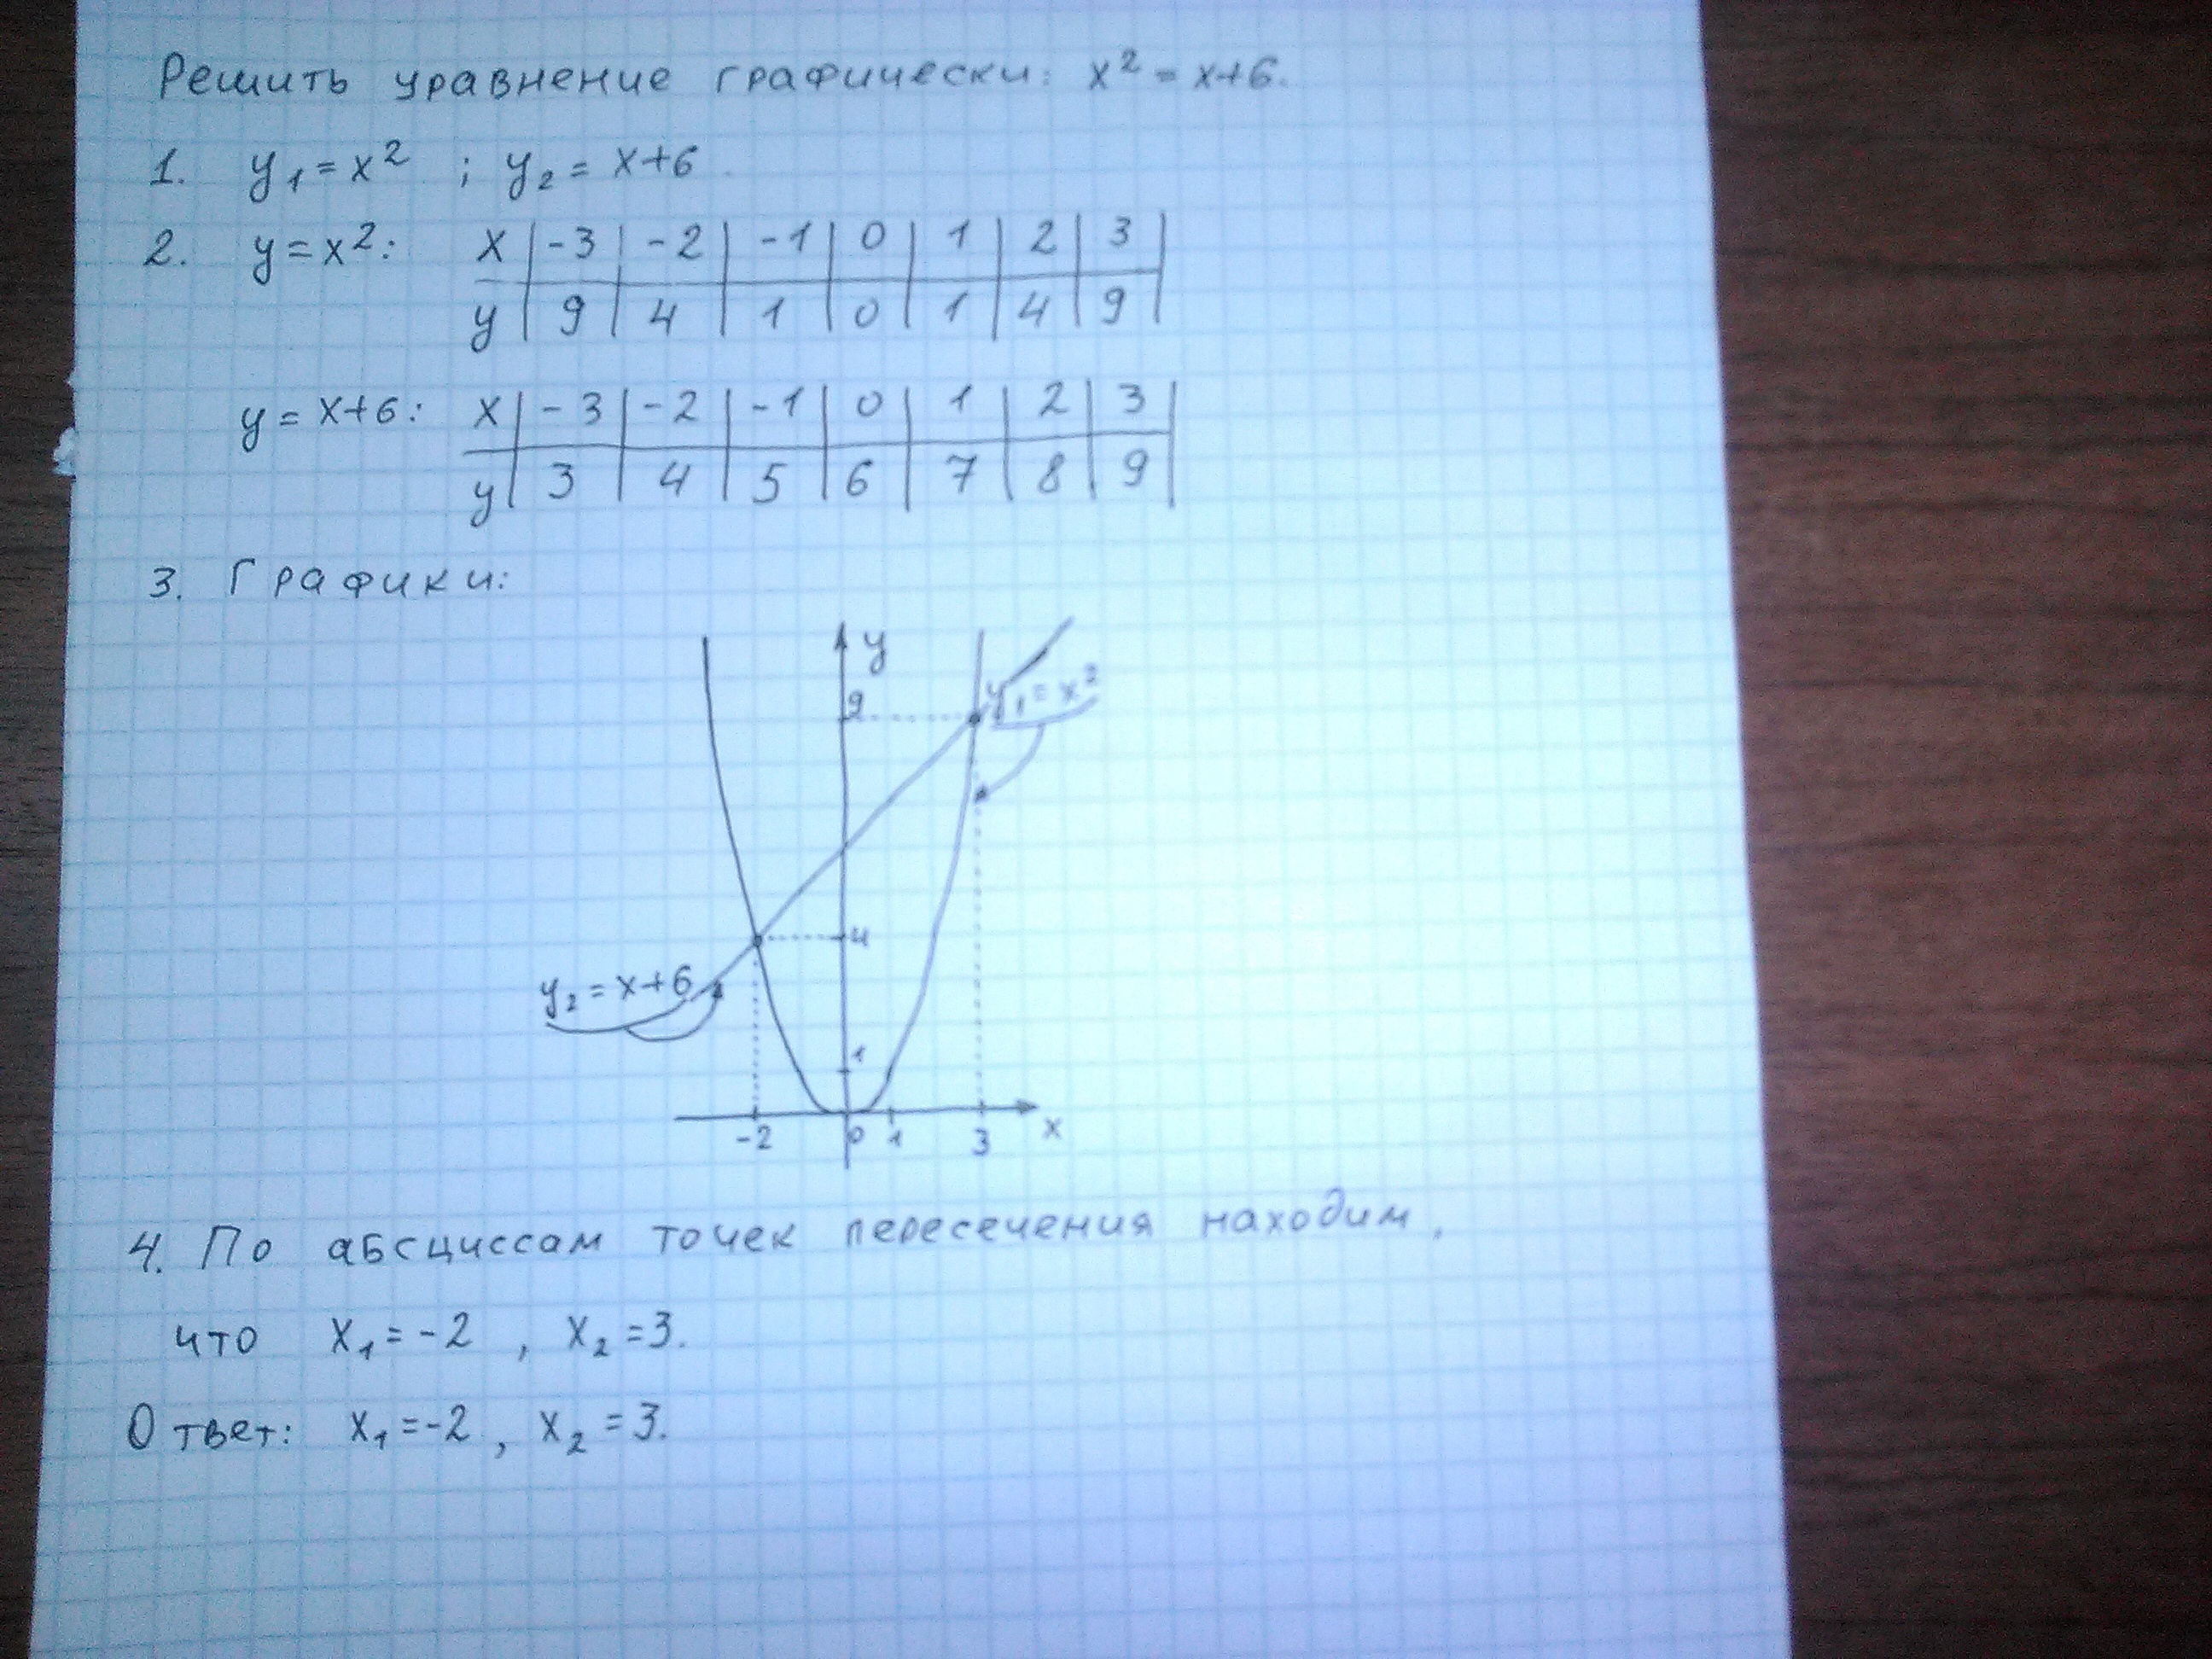 Решить уравнение графически: x² = x+6.
1. y₁ = x² ; y₂ = x+6
2. y = x²: x | -3 | -2 | -1 | 0 | 1 | 2 | 3 |
y | 9 | 4 | 1 | 0 | 1 | 4 | 9 |
y = x+6: x | -3 | -2 | -1 | 0 | 1 | 2 | 3 |
y | 3 | 4 | 5 | 6 | 7 | 8 | 9 |
3. Графики:
y
9
y₁ = x²
4
y₂ = x+6
1
-2 0 1 3 x
4. По абсциссам точек пересечения находим,
что x₁ = -2 , x₂ = 3.
Ответ: x₁ = -2 , x₂ = 3.